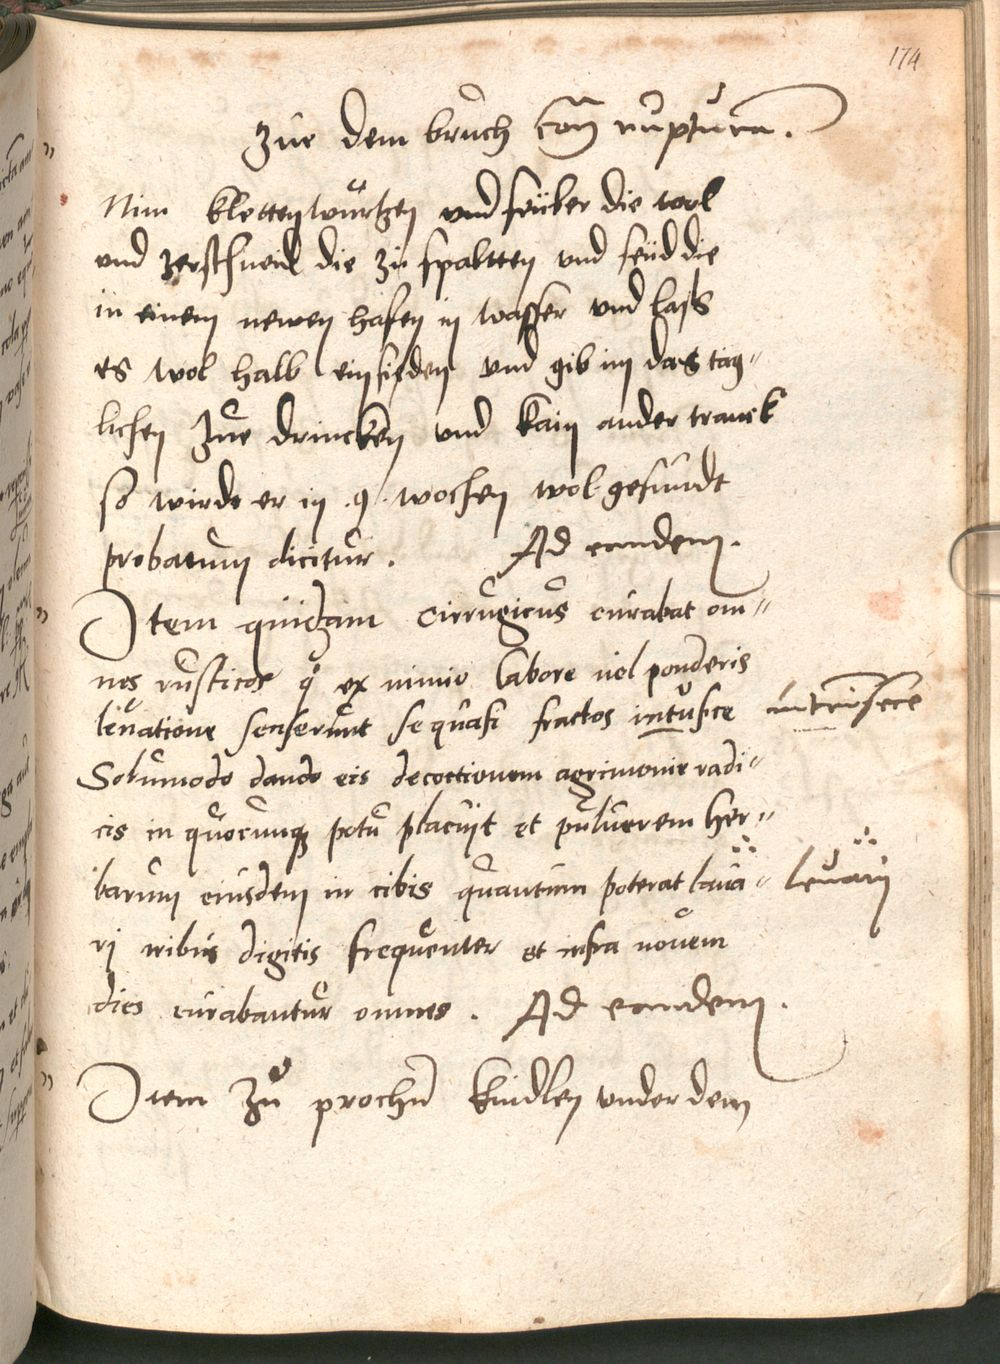 174
Zue dem bruch con̄ ruptura.
Nim klettenwurtzen vnd seüber die wol
vnd zerschneid die zu spaltten vnd seüd die
in einem newen hafen in wasser vnd lass
es wol halb einsieden vnd gib im das täg〃
lichen zue drincken vnd kain ander tranck
so wirde er in .9. wochen wol gesundt
probatum dicitur. Ad eamdem.
Item quidam Cirrugicus curabat om〃
nes rusticos q̊ ex nimio labore uel ponderis
leuatione senserunt se quasi fractos intusice intrinsece
Solumodo dando eis decoctionem agrimonie radi〃
cis in quocunq potu placuit et puluerem her〃
barum eiusdem in cibis quantum poterat laua〃 leuarij
rj tribus digitis frequenter et infra nouem
dies curabantur omnes. Ad eamdem.
Item Zu prochn̄ kindlen vnder dem